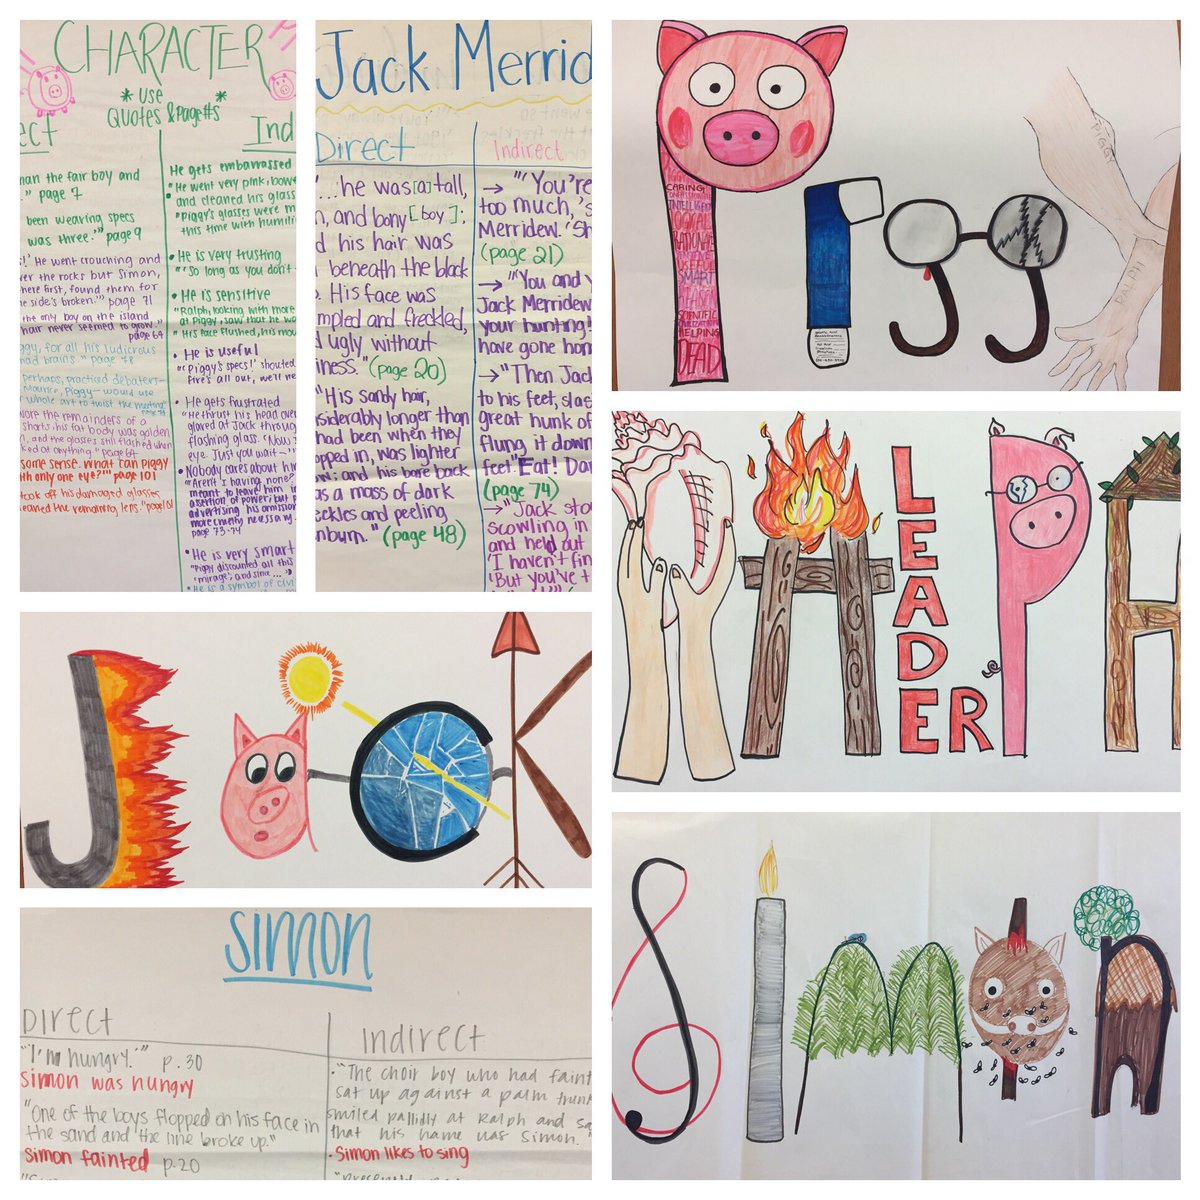 CHARACTER
*use*
Quotes & Page#s
ect
man the fair boy and
" page 7
been wearing specs
was three.'" page 9
He went crouching and
er the rocks but Simon,
here first, found them for
side's broken.'" page 71
the only boy on the island
hair never seemed to grow."
page 64
ggy, for all his ludicrous
perhaps, practiced debaters—
Maurice, Piggy—would use
whole art to twist the meeting
wore the remainders of a
shorts, his fat body was golden
and the glasses still flashed when
ked at anything." page 64
some sense. What can piggy
th only one eye?'" page 101
took off his damaged glasses
cleaned the remaining lens." page 101
Ind
He gets embarrassed
"He went very pink, bowe
and cleaned his glass
"Piggy's glasses were m
this time with humili
• He is very trusting
"'So long as you don't
• He is sensitive
"Ralph, looking with more
at Piggy, saw that he wa
His face flushed, his mou
• He is useful
"'Piggy's specs!' shouted
Fire's all out, we'll ne
• He gets frustrated
"He thrust his head over
glared at Jack through
flashing glass. 'Now
eye. Just you wait—'"
• Nobody cares about him
"Aren't I having none?
meant to leave him in
assertion of power; but
advertising his omission
more cruelty necessary
page 73-74
• He is very smart
"Piggy discounted all this
'mirage'; and since
• He is a symbol of civi
Jack Merrid
Direct
"...he was [a] tall,
n, and bony [boy];
d his hair was
beneath the black
. His face was
mpled and freckled,
d ugly without
iness." (page 20)
"His sandy hair,
siderably longer than
had been when they
opped in, was lighter
ow; and his bare back
as a mass of dark
eckles and peeling
nburn." (page 48)
Indirect
→ "'You're
too much,'s
Merridew. 'Sh
(page 21)
→ "You and y
Jack Merridew
your hunting!
have gone hom
→ "Then Jac
to his feet, slas
great hunk of
flung it down
feet. "Eat! Dam
(page 74)
→ "Jack sto
scowling in
and held out
'I haven't fin
'But you've t
Piggy
CARING
INTELLIGENT
LOGICAL
RATIONAL
SMART
SCIENTIFIC
HELPING
DEAD
PIGGY
RALPH
RALPH
LEADER
JACK
SIMON
Simon
DIRECT
"'I'm hungry.'" p. 30
Simon was hungry
"One of the boys flopped on his face in
the sand and the line broke up."
Simon fainted p. 20
Indirect
• "The choir boy who had faint
sat up against a palm trunk
smiled pallidly at Ralph and sa
that his name was Simon."
• Simon likes to sing